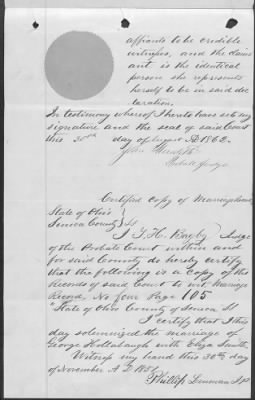 affiants to be credible
witnesses, and the claim
ant is the identical
person she represents
herself to be in said dec
laration.
In testimony whereof I hereto have set my
signature and the seal of said Court
this 30th day of August AD 1862.
Probate Judge
Certified Copy of Marriage
State of Ohio
Seneca County } ss
I, Judge
of the Probate Court within and
for said County do hereby certify
that the following is a copy of the
Records of said Court to wit, Marriage
Record, No four Page 105
"State of Ohio County of Seneca Ss
I certify that I this
day solemnized the marriage of
George Hollabaugh with Eliza Smith,
Witness my hand this 30th day
of November A.D.
Phillip